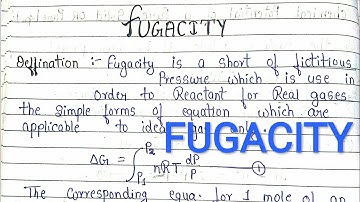 FUGACITY
Deffination :- Fugacity is a short of fictitious
Pressure which is use in
order to Reactant for Real gases
the simple forms of equation which are
applicable to ideal gas only.
FUGACITY
ΔG = ∫ P₂ P₁ nRT dP/P ①
The corresponding equa. for 1 mole of an